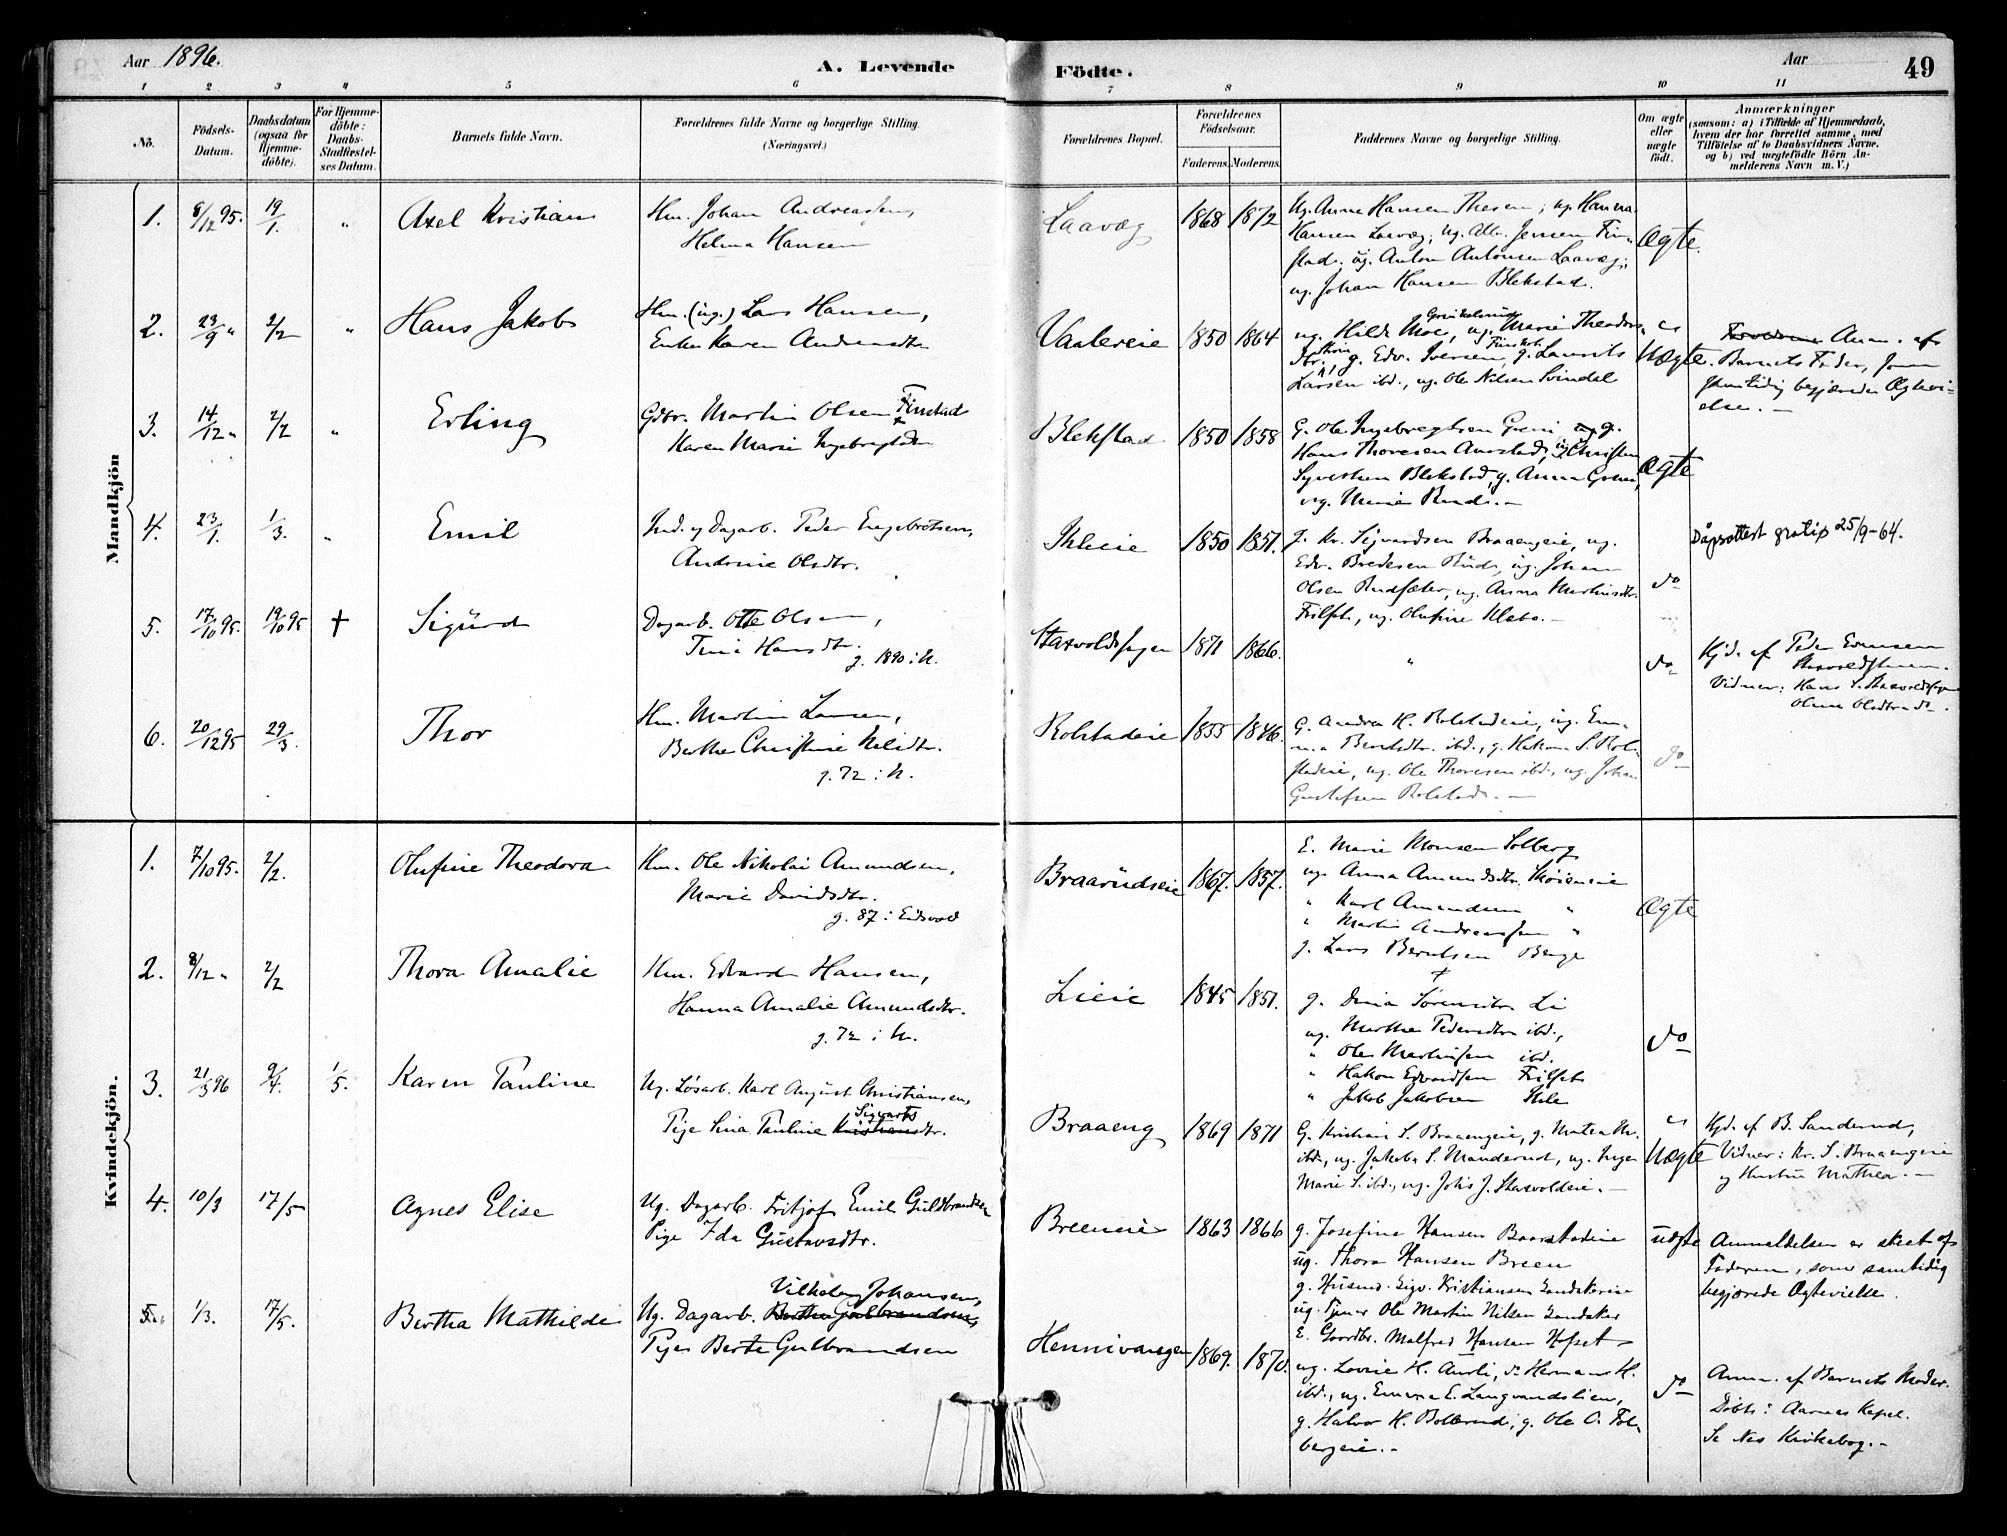 Aar 1896.
A. Levende
Födte.
Aar
49
1 2 3 4 5 6 7 8 9 10 11
No.
Födsels-
Datum.
Daabsdatum
(ogsaa for
Hjemme-
döbte).
For Hjemme-
döbte:
Daabs-
Stadfæstel-
ses Datum.
Barnets fulde Navn.
Forældrenes fulde Navne og borgerlige Stilling.
(Næringsvei.)
Forældrenes Bopæl.
Forældrenes
Födselsaar.
Faderens. Moderens.
Faddernes Navne og borgerlige Stilling.
Om ægte
eller
uægte
födt.
Anmærkninger
(saasom: a) i Tilfælde af Hjemmedaab,
hvem der har forrettet samme, med
Tilföielse af to Daabsvidners Navne,
og b) ved uægtefödte Börn An-
melderens Navn m. V.)
Mandkjön
1. 8/12 95. 19/1. " Axel Kristian
Hm. Johan Andreassen,
Helma Hansen
Laavæg 1868 1872
Ug. Anne Hansen Thesen, ug. Hanna
Hansen Laavæg, ug. Jensen Fin-
stad, ug. Anton Antonsen Laavæg,
ug. Johan Hansen Blekstad.
Ægte.
2. 23/9 " 2/2 " Hans Jakob
Hm. (ug.) Lars Hansen,
Enke Karen Andersdtr.
Vaalereie 1850 1864
ug. Hilda Moe, ug. Marie Theodors
dtr., g. Edv. Iversen, g. Laurits
Larsen ibd., ug. Ole Nilsen Svindal
Uægte.
Anm. af
Barnets Fader, som
samtidig begjærede Ægtevi-
else. -
3. 14/12 " 2/2 " Erling
Gdbr. Martin Olsen Finstad
Karen Marie Ingebrigtsdtr.
Blekstad 1850 1858
G. Ole Ingebregtsen Greni g.
Hans Thoresen Aurstad, ug. Christian
Syversen Blekstad, g. Anna Greni,
ug. Marie Rud. -
Ægte
4. 23/1. 1/3. " Emil
Ind. og Dagarb. Peder Engebretsen,
Andrine Olsdtr.
Ihleie 1850 1851.
g. Kr. Sigvardsen Braaengeie, ug.
Edv. Bredesen Ruud, ug. Johan
Olsen Rudsæter, ug. Anna Martinsdtr.
Frilset, ug. Olufine Klebo. -
do
Dåpsattest gratis 25/9-64.
5. 17/10 95. 19/10 95 † Sigurd
Dagarb. Otto Olsen,
Tina Hansdtr.
g. 1890 i N.
Stasvoldshagen 1871 1866.
"
do
Hjd. af Peder Evensen
Vidner: Hans S. Stasvoldhagen
Oline Olsdtr. do.
6. 20/12 95 29/3. Thor
Hm. Martin Larsen,
Berthe Christine Nilsdtr.
g. 72 i N.
Rolstadeie 1855 1846.
G. Andrea H. Rolstadeie, ug. Em-
ma Berntsdtr. ibd., g. Hakon S. Rol-
stadeie, ug. Ole Thoresen ibd., ug. Johan
Gustafsen Rolstad. -
do
Kvindekjön.
1. 7/10 95. 2/2. Olufine Theodora
Hm. Ole Nikolai Amundsen,
Marie Davidsdtr.
g. 87 i Eidsvold
Braarudseie 1867. 1857.
E. Marie Monsen Solberg
ug. Anna Amundsdtr.
" Karl Amundsen "
" Martin Andreassen "
g. Lars Berntsen Berge
Ægte
2. 8/12 " 2/2 Thora Amalie
Hm. Edvard Hansen,
Hanna Amalie Amundsdtr.
g. 72 i N.
Lieie 1845 1851.
†
g. Dina Sörensdtr. Li
ug. Marthe Pedersdtr. ibd.,
" Ole Martinsen ibd.
" Hakon Edvardsen Frilset
" Jakob Jakobsen Ihle
do
3. 21/3 96 9/4. 1/5. Karen Pauline
Ug. Løsarb. Karl August Christiansen,
Pige Lina Pauline Sigvarts Kristiansdtr.
Braaeng 1869 1871
G. Kristian S. Braaengeie, g. Matea N.
ibd., ug. Jakoba S. Manderud, ug. Inger
Marie S. ibd., ug. Johs J. Stasvoldeie. -
Uægte
Hjd. af B. Sanderud,
Vidner: Kr. S. Braaengeie
og Hustru Mathea. -
4. 10/3 17/5 Agnes Elise
Ug. Dagarb. Fritjof Emil Guldbrandsen
Pige Ida Gustavsdtr.
Breeneie 1863 1866
g. Josefine Hansen Baarstadeie
ug. Thora Hansen Breen
g. Husmd. Sigv. Kristiansen Sandakereie
ug. Tjener Ole Martin Nilsen Sandaker
E. Gaardbr. Malfred Hansen Hofset
uægte
Anmeldelsen er skeet af
Faderen, som samtidig
begjærede Ægtevielse.
5. 1/3. 17/5. Bertha Mathilde
Vilhelm Johansen,
Ug. Dagarb. Berthe Gulbrandsen
Pige Berte Gulbrandsen
Hennivangen 1869. 1870.
ug. Lovise H. Aurli, do Herman H.
ibd., ug. Emma E. Langvandslien,
g. Halvor H. Bollerud, g. Ole O. Fol-
bergeie. -
do
Anm. af Barnets Moder.
Döbt i Aarnes Kapel.
Se Nes Kirkebog. -